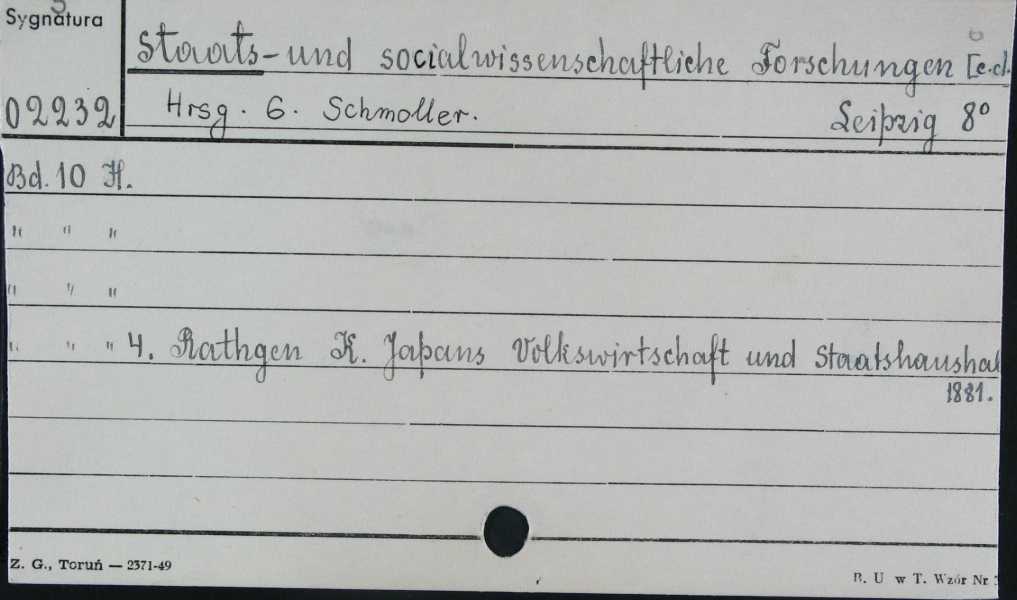 Sygnatura
Staats-und socialwissenschaftliche Forschungen [c.d.
02232 Hrsg. G. Schmoller. Leipzig 8°
Bd. 10 H.
" " "
" " "
" " " 4. Rathgen K. Japans Volkswirtschaft und Staatshaushal
1881.
Z. G., Toruń — 2371-49
B. U w T. Wzór Nr